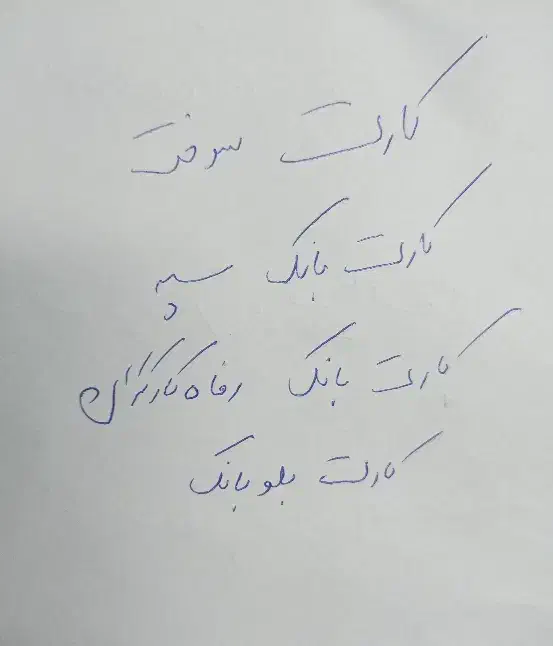 کارت سوخت
کارت بانک سپه
کارت بانک رفاه کارگران
کارت بلو بانک